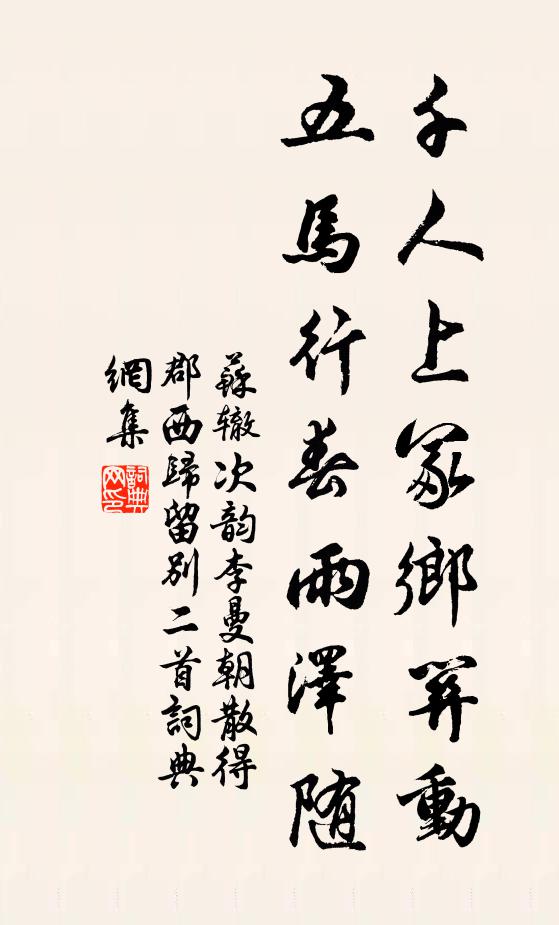 千人上冢鄉關動
五馬行春雨澤随
蘇辙次韵李曼朝散得
郡西歸留别二首詞典
網集
詞典
网印